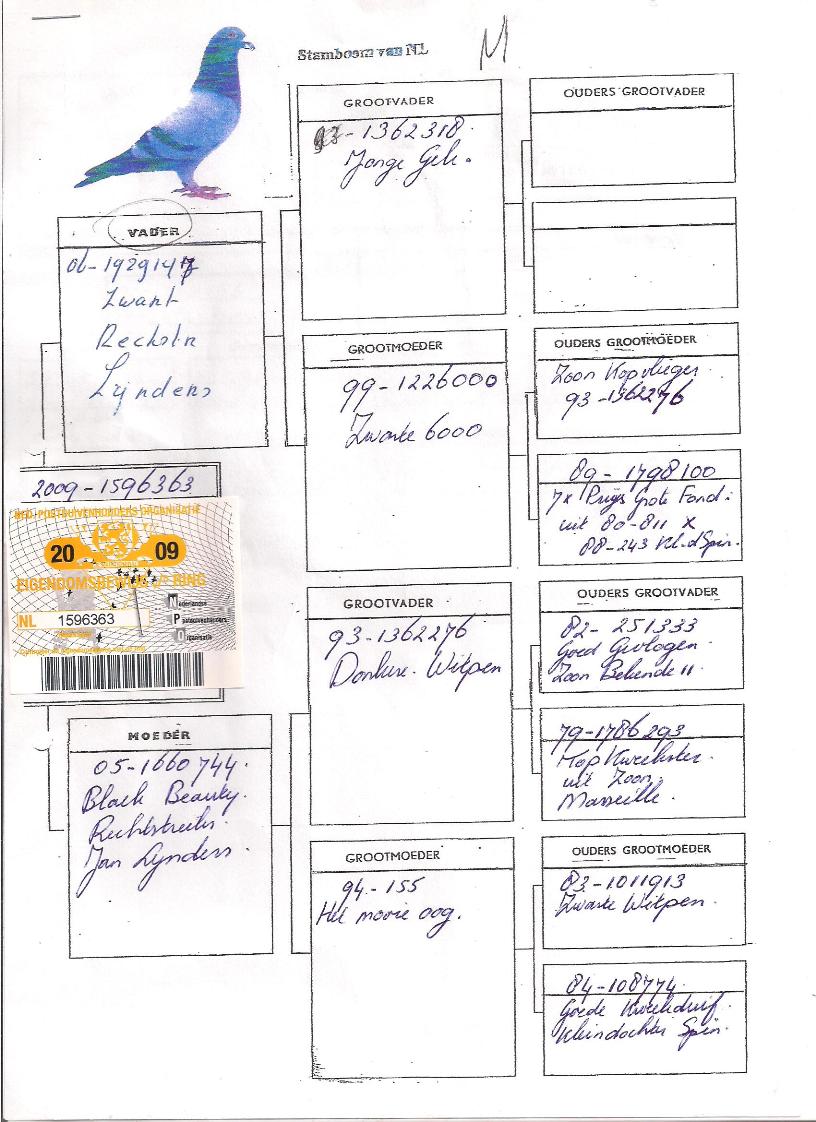 Stamboom van NL
M
GROOTVADER
93-1362318.
Jonge Gek.
OUDERS GROOTVADER
VADER
06-1929147
Zwart
Rechstr
Lijnders
GROOTMOEDER
99-1226000
Zwarte 6000
OUDERS GROOTMOEDER
Zoon Kopvlieger
93-1362276
89-1798100
7x Prijs Grote Fond:
uit 80-811 x
88-243 Kl.d Spin.
2009-1596363
NED. POSTDUIVENHOUDERS ORGANISATIE
20 09
EIGENDOMSBEWIJS RING
NL 1596363
Nederlandse
Postduivenhouders
Organisatie
GROOTVADER
93-1362276
Donkere Witpen
OUDERS GROOTVADER
82-251333
Goed Gevlogen
Zoon Bekende 11
79-1786293
Top Kweekster
uit Zoon.
Marseille.
MOEDER
05-1660744.
Black Beauty.
Rechtstreeks.
Jan Lijnders.
GROOTMOEDER
94-155
Het mooie oog.
OUDERS GROOTMOEDER
83-1011913
Zwarte Witpen.
84-108774
Goede Kweekduif.
Kleindochter Spin.